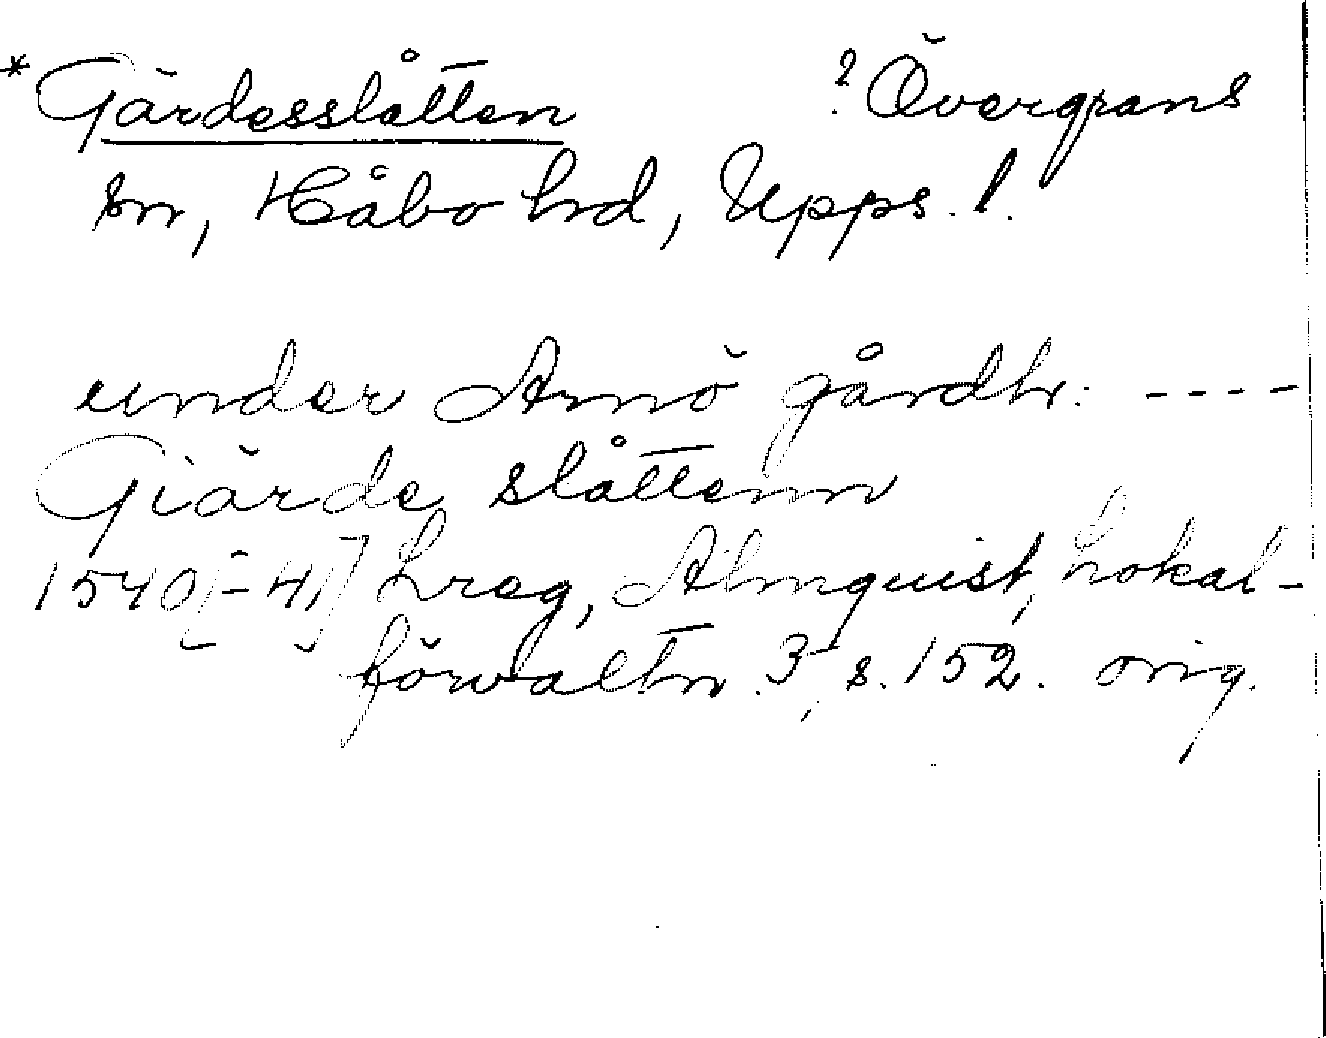 *Gärdesslåtten ? Övergrans
sn, Håbo hd, Upps. l.
under Arnö gårdh: ----
Giärde slåttenn
1540[-41] Lreg, Almquist, Lokal-
förvaltn. 3, s. 152. orig.